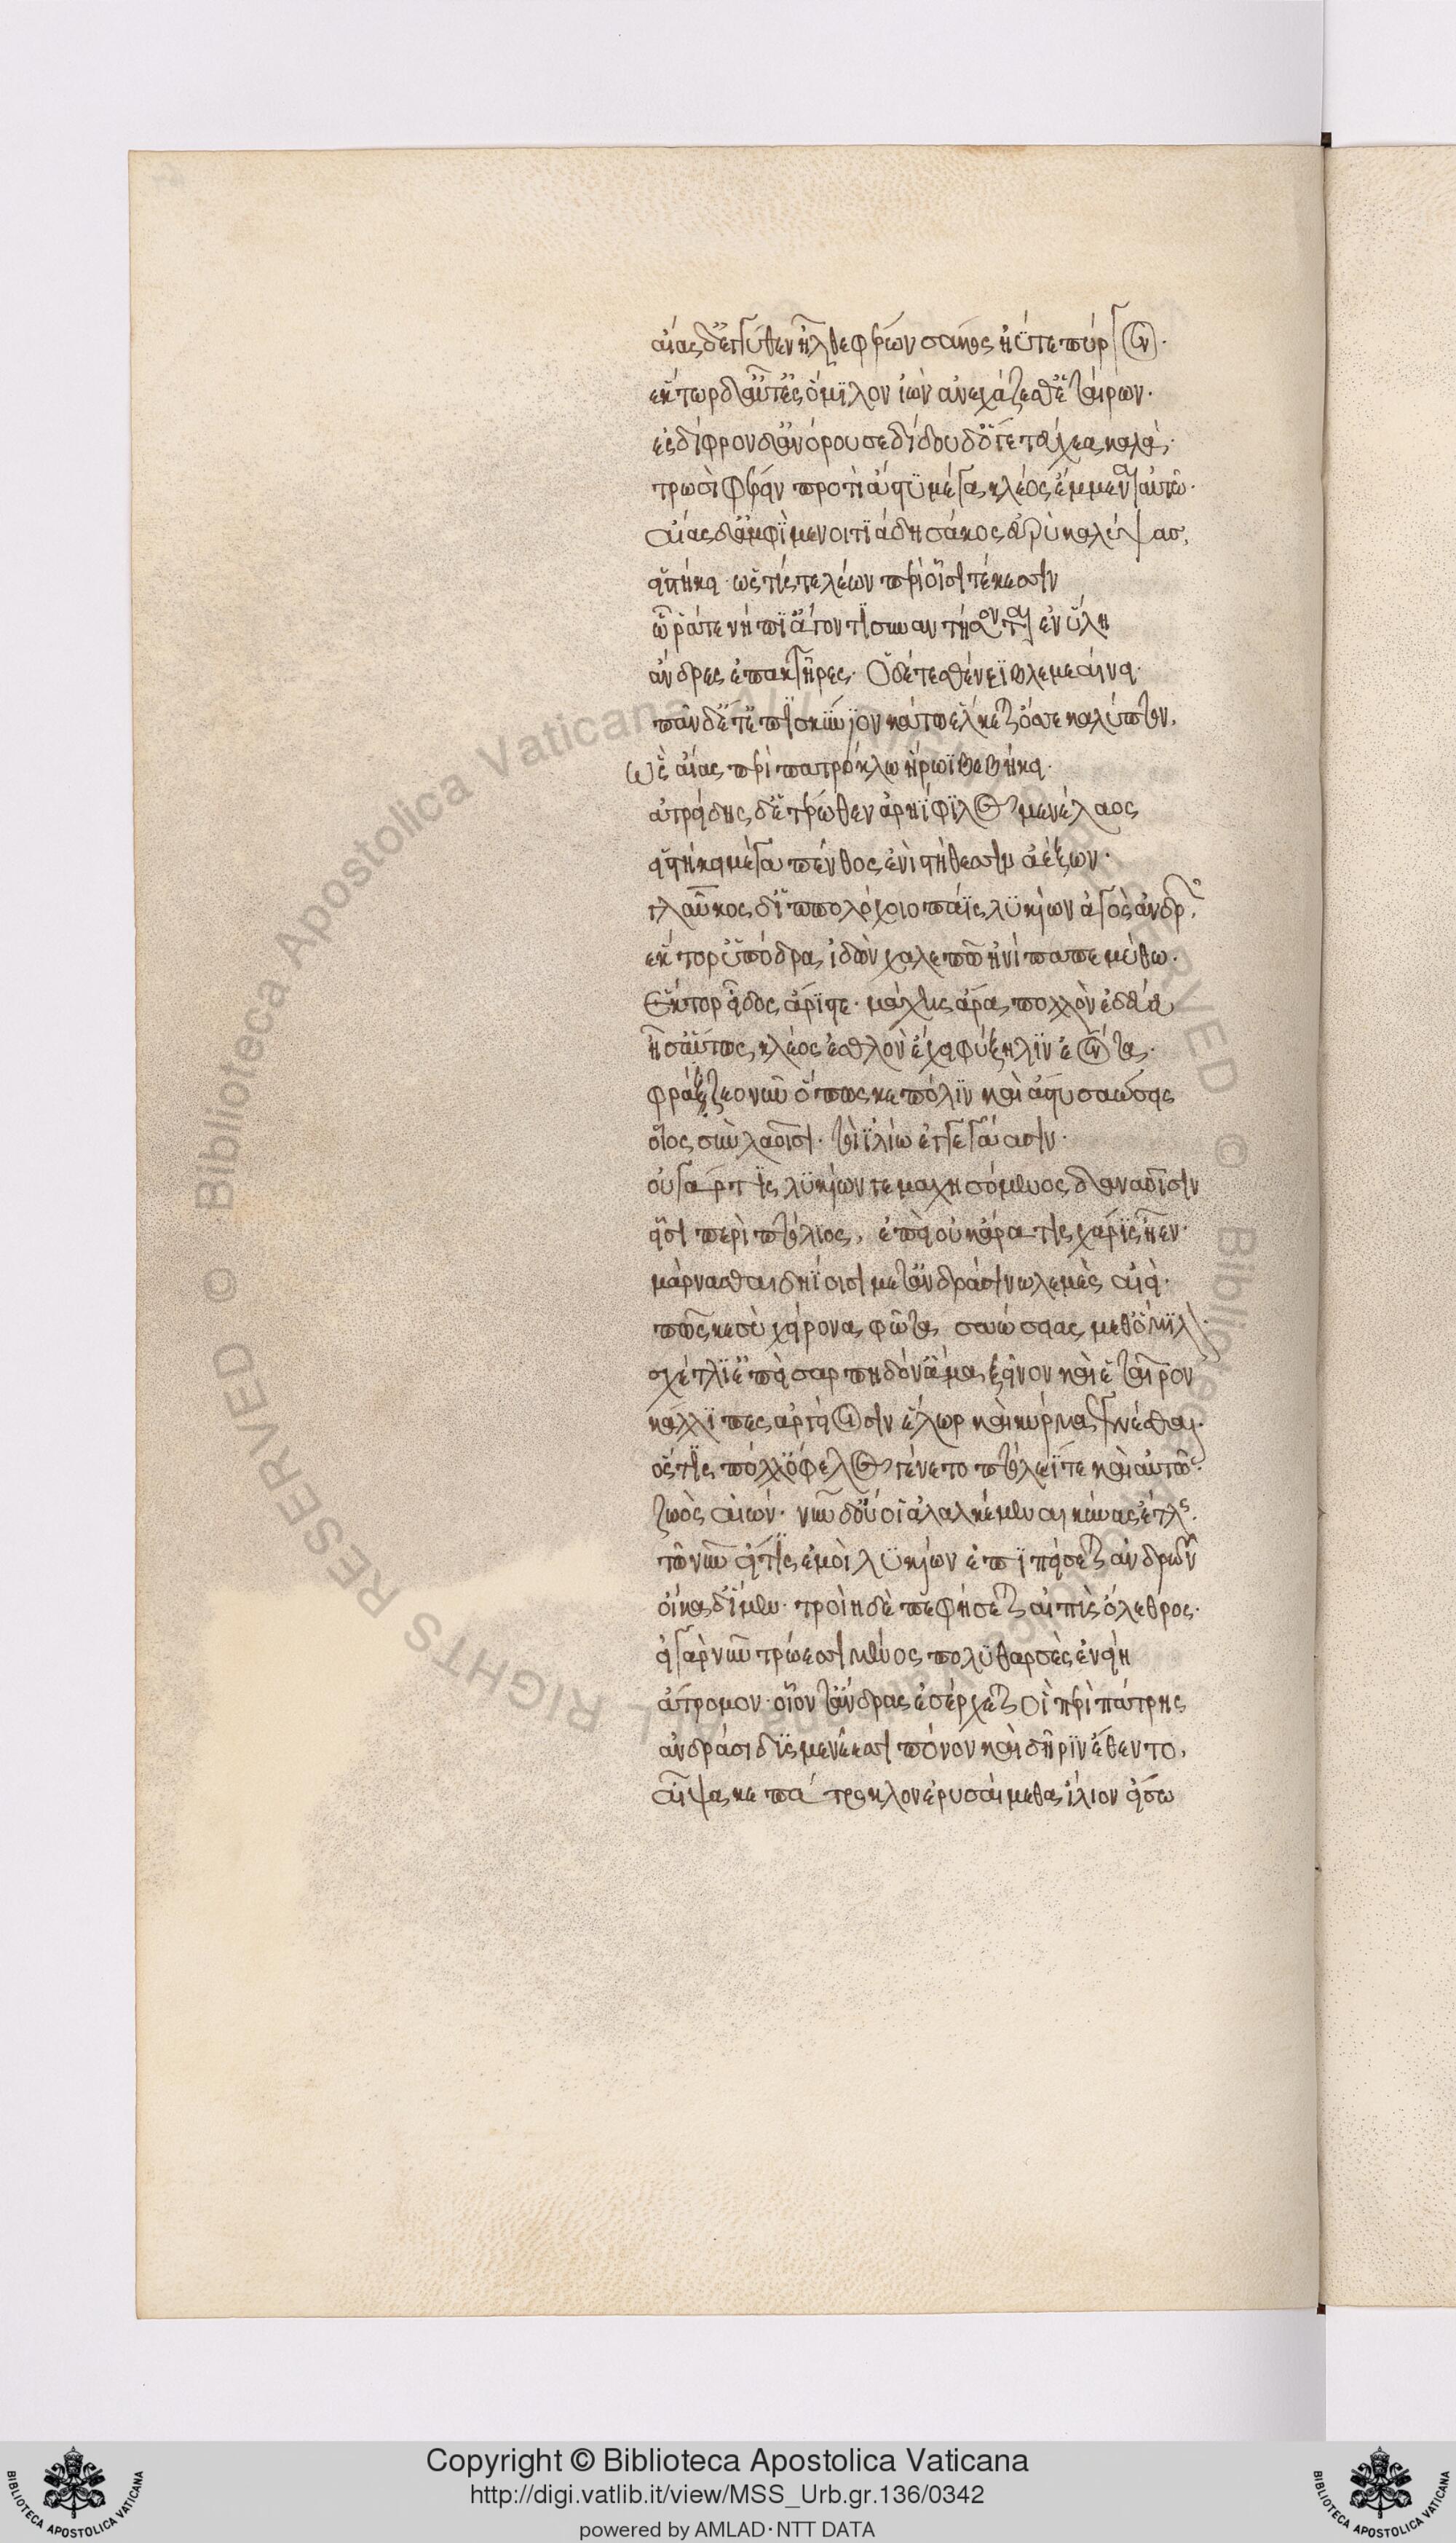 αἴας δ' ἐγγύθεν ἦλθε φέρων σάκος ἠΰτε πύργον·
ἕκτωρ δ' ἂψ ἐς ὅμιλον ἰὼν ἀνεχάζεθ' ἑταίρων·
ἐς δίφρον δ' ἀνόρουσε δίδου δ' ὅ γε τεύχεα καλὰ
τρωσὶ φέρειν προτὶ ἄστυ μέγα κλέος ἔμμεναι αὐτῶ·
αἴας δ' ἀμφὶ μενοιτιάδη σάκος εὐρὺ καλύψας,
εἱστήκει ὥς τίς τε λέων περὶ οἷσι τέκεσσιν
ὧ ῥά τε νήπι' ἄγοντι συναντήσονται ἐν ὕλη
ἄνδρες ἐπακτῆρες· ὁ δέ τε σθένεϊ βλεμεαίνει·
πᾶν δέ τ' ἐπισκύνιον κάτω ἕλκεται ὄσσε καλύπτων,
ὣς αἴας περὶ πατρόκλω ἥρωϊ βεβήκει·
ἀτρείδης δ' ἑτέρωθεν ἀρηΐφιλος μενέλαος
εἱστήκει μέγα πένθος ἐνὶ στήθεσσιν ἀέξων·
γλαῦκος δ' ἱππολόχοιο πάϊς λυκίων ἀγὸς ἀνδρῶν,
ἕκτορ' ὑπόδρα ἰδὼν χαλεπῶ ἠνίπαπε μύθω·
ἕκτορ εἶδος ἄριστε· μάχης ἄρα πολλὸν ἐδεύεο
ἦ σ' αὔτως κλέος ἐσθλὸν ἔχει φύξηλιν ἐόντα·
φράζεο νῦν ὅππως κε πόλιν καὶ ἄστυ σαώσεις
οἶος σὺν λαοῖσι· τοὶ ἰλίω ἐγγεγάασιν·
οὐ γάρ τις λυκίων γε μαχησόμενος δαναοῖσιν
εἶσι περὶ πτόλιος, ἐπεὶ οὐκ ἄρα τις χάρις ἦεν·
μάρνασθαι δηΐοισι μετ' ἀνδράσι νωλεμὲς αἰεί·
πῶς κε σὺ χείρονα φῶτα σαώσειας μεθ' ὅμιλον·
σχέτλι' ἐπεὶ σαρπηδόν' ἅμα ξεῖνον καὶ ἑταῖρον
κάλλιπες ἀργείοισιν ἕλωρ καὶ κύρμα γενέσθαι·
ὅς τις πόλλ' ὄφελος γένετο πτόλεΐ τε καὶ αὐτῶ·
ζωὸς ἐών· νῦν δ' οὔ οἱ ἀλαλκέμεναι κύνας ἔτλης·
τῶ νῦν εἴ τις ἐμοὶ λυκίων ἐπιπείσεται ἀνδρῶν
οἴκαδ' ἴμεν· τροίη δὲ πεφήσεται αἰπὺς ὄλεθρος·
εἰ γὰρ νῦν τρώεσσι μένος πολυθαρσὲς ἐνείη
ἄτρομον· οἷόν τ' ἄνδρας ἐσέρχεται οἳ περὶ πάτρης
ἀνδράσι δυσμενέεσσι πόνον καὶ δῆριν ἔθεντο,
αἶψά κε πάτροκλον ἐρυσαίμεθα ἴλιον εἴσω
Copyright © Biblioteca Apostolica Vaticana
http://digi.vatlib.it/view/MSS_Urb.gr.136/0342
powered by AMLAD·NTT DATA